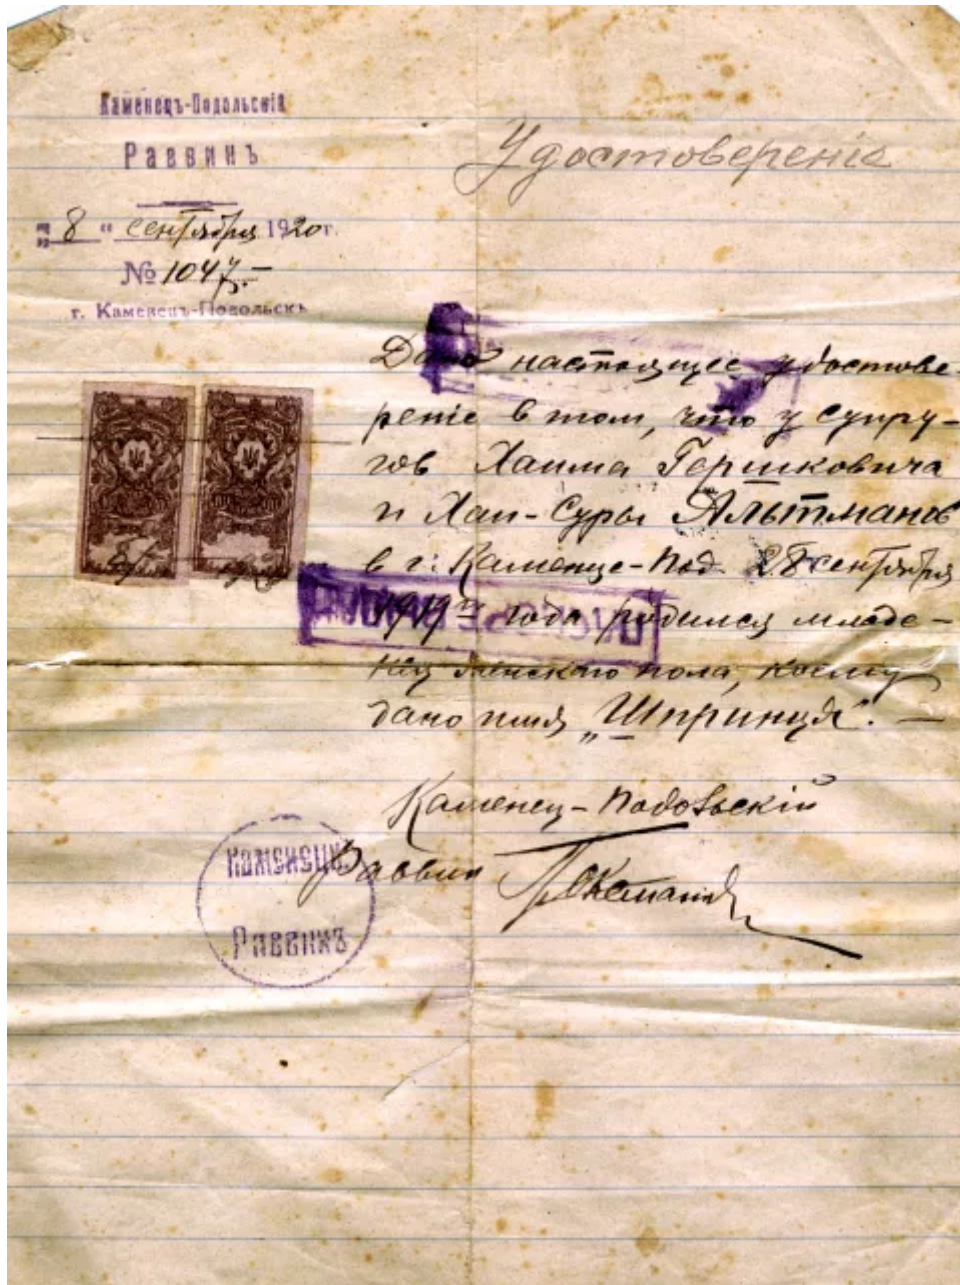 Каменецъ-Подольскій
Раввинъ
"8" сентября 1920 г.
№ 1047.—
г. Каменецъ-Подольскъ
Удостоверенiе
Дано настоящее удостове-
ренiе в том, что у супру-
гов Хаима Гершковича
и Хаи-Суры Альтманов
в г. Каменце-Под. 28 сентября
1919 го года родился младе-
нец женскаго пола, коему
дано имя „Шпринця". —
Каменец-Подольскій
Раввин
Каменецк.
Раввинъ